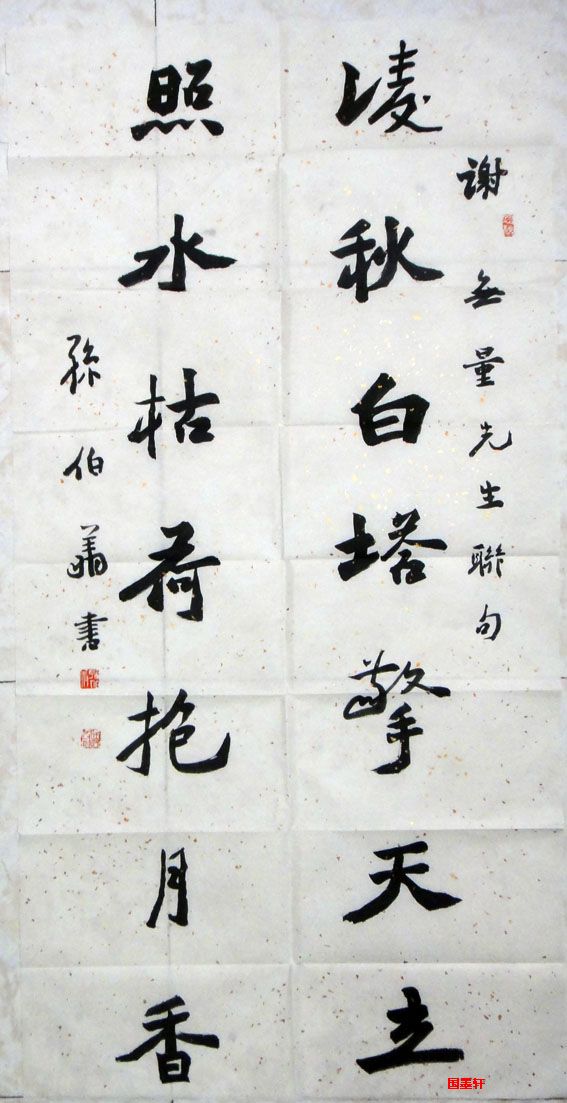 謝無量先生聯句
凌秋白塔擎天立
照水枯荷抱月香
孫伯翔書
国墨轩